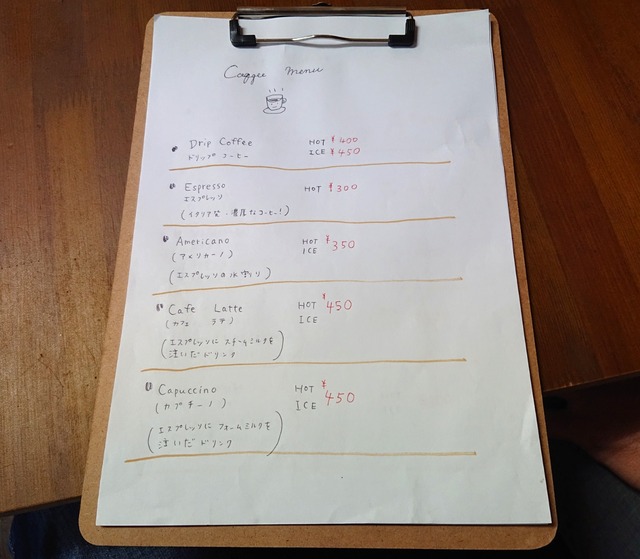 Coffee menu
Drip Coffee HOT ¥400
ドリップ コーヒー ICE ¥450
Espresso HOT ¥300
エスプレッソ
(イタリア発・濃厚なコーヒー!)
Americano HOT ¥350
(アメリカーノ) ICE
(エスプレッソの水割り)
Cafe Latte HOT ¥450
(カフェ ラテ) ICE
(エスプレッソに スチームミルクを
注いだドリンク)
Capuccino HOT ¥450
(カプチーノ) ICE
(エスプレッソに フォームミルクを
注いだ ドリンク)